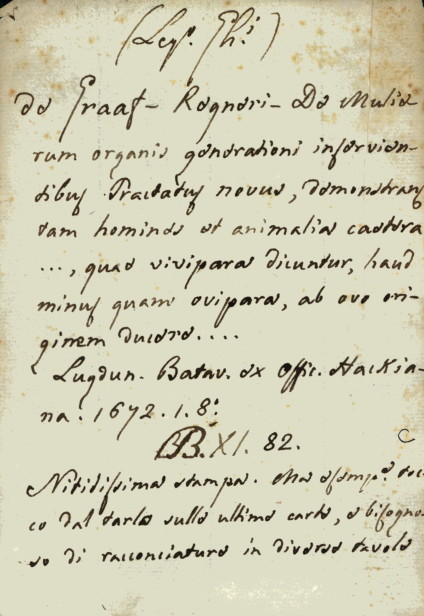 (Leg. Ghi)
de Graaf - Regneri - De Mulie
rum organis generationi inservien-
tibus Tractatus novus, demonstrans
tam homines et animalia caetera
..., quae vivipara dicuntur, haud
minus quam ovipara, ab ovo ori-
ginem ducere....
Lugdun. Batav. ex Offic. Hackia-
na. 1672. 1. 8.
B. XI. 82.
Nitidissima stampa. Ma esemp.e toc-
co dal tarlo sulle ultime carte, e bisogno-
so di racconciature in diverse tavole